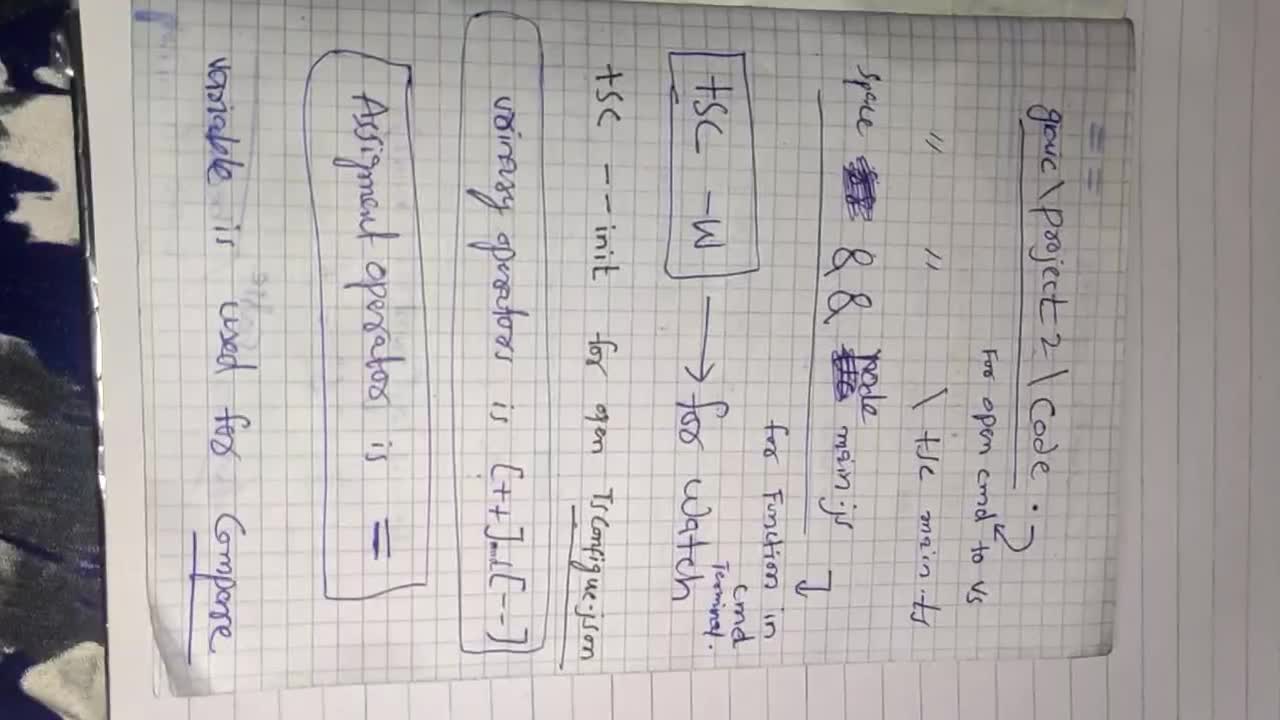 = =
\project 2 \ Code .
For open cmd to vs
" " \ tsc main.ts
space && node main.js
for Function in cmd
Terminal.
tSC -W → for watch
tSC --init for open TSConfigue.json
operators is [++] and [--]
Assigment operator is =
variable is used for Compare